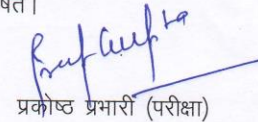 षित।
प्रकोष्ठ प्रभारी (परीक्षा)